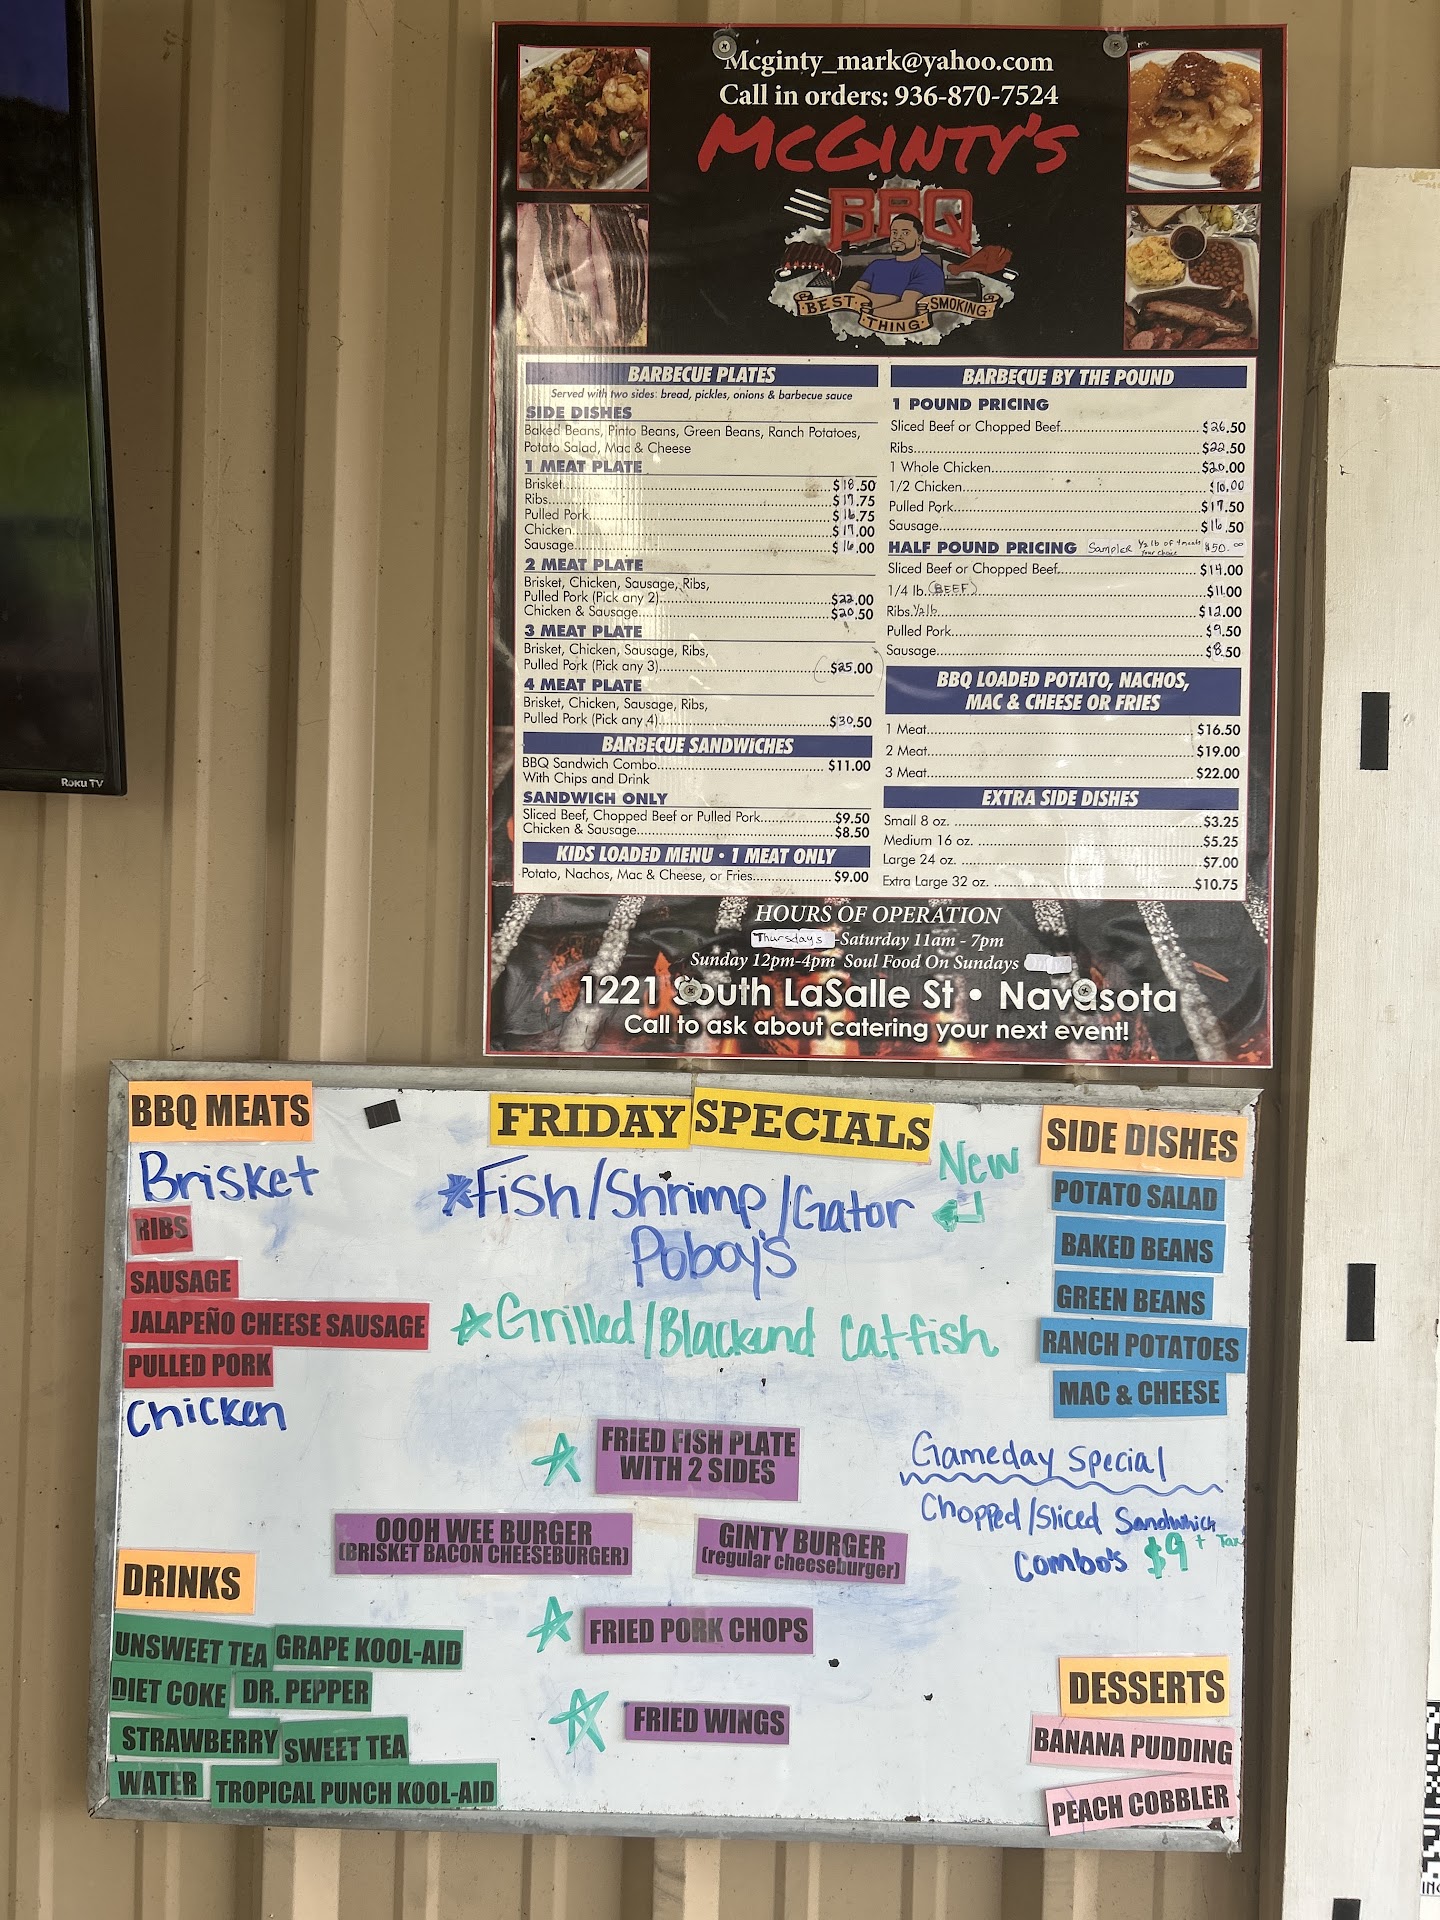 Mcginty_mark@yahoo.com
Call in orders: 936-870-7524
McGinty's
BBQ
BEST THING SMOKING
BARBECUE PLATES
Served with two sides: bread, pickles, onions & barbecue sauce
SIDE DISHES
Baked Beans, Pinto Beans, Green Beans, Ranch Potatoes,
Potato Salad, Mac & Cheese
1 MEAT PLATE
Brisket $18.50
Ribs $17.75
Pulled Pork $16.75
Chicken $17.00
Sausage $16.00
2 MEAT PLATE
Brisket, Chicken, Sausage, Ribs,
Pulled Pork (Pick any 2) $22.00
Chicken & Sausage $20.50
3 MEAT PLATE
Brisket, Chicken, Sausage, Ribs,
Pulled Pork (Pick any 3) $25.00
4 MEAT PLATE
Brisket, Chicken, Sausage, Ribs,
Pulled Pork (Pick any 4) $30.50
BARBECUE SANDWICHES
BBQ Sandwich Combo $11.00
With Chips and Drink
SANDWICH ONLY
Sliced Beef, Chopped Beef or Pulled Pork $9.50
Chicken & Sausage $8.50
KIDS LOADED MENU • 1 MEAT ONLY
Potato, Nachos, Mac & Cheese, or Fries $9.00
BARBECUE BY THE POUND
1 POUND PRICING
Sliced Beef or Chopped Beef $26.50
Ribs $22.50
1 Whole Chicken $20.00
1/2 Chicken $10.00
Pulled Pork $17.50
Sausage $16.50
HALF POUND PRICING Sampler 1/2 lb of 4 meats your choice $50.00
Sliced Beef or Chopped Beef $14.00
1/4 lb. (BEEF) $11.00
Ribs 1/2 lb $12.00
Pulled Pork $9.50
Sausage $8.50
BBQ LOADED POTATO, NACHOS,
MAC & CHEESE OR FRIES
1 Meat $16.50
2 Meat $19.00
3 Meat $22.00
EXTRA SIDE DISHES
Small 8 oz. $3.25
Medium 16 oz. $5.25
Large 24 oz. $7.00
Extra Large 32 oz. $10.75
HOURS OF OPERATION
Thursdays-Saturday 11am - 7pm
Sunday 12pm-4pm Soul Food On Sundays
1221 South LaSalle St • Navasota
Call to ask about catering your next event!
Roku TV
BBQ MEATS
Brisket
RIBS
SAUSAGE
JALAPEÑO CHEESE SAUSAGE
PULLED PORK
Chicken
DRINKS
UNSWEET TEA GRAPE KOOL-AID
DIET COKE DR. PEPPER
STRAWBERRY SWEET TEA
WATER TROPICAL PUNCH KOOL-AID
FRIDAY SPECIALS
New
*Fish/Shrimp/Gator
Poboy's
Grilled/Blackund Catfish
FRIED FISH PLATE
WITH 2 SIDES
OOOH WEE BURGER
(BRISKET BACON CHEESEBURGER)
GINTY BURGER
(regular cheeseburger)
FRIED PORK CHOPS
FRIED WINGS
SIDE DISHES
POTATO SALAD
BAKED BEANS
GREEN BEANS
RANCH POTATOES
MAC & CHEESE
Gameday Special
Chopped/Sliced Sandwhich
Combo's $9 + Tax
DESSERTS
BANANA PUDDING
PEACH COBBLER